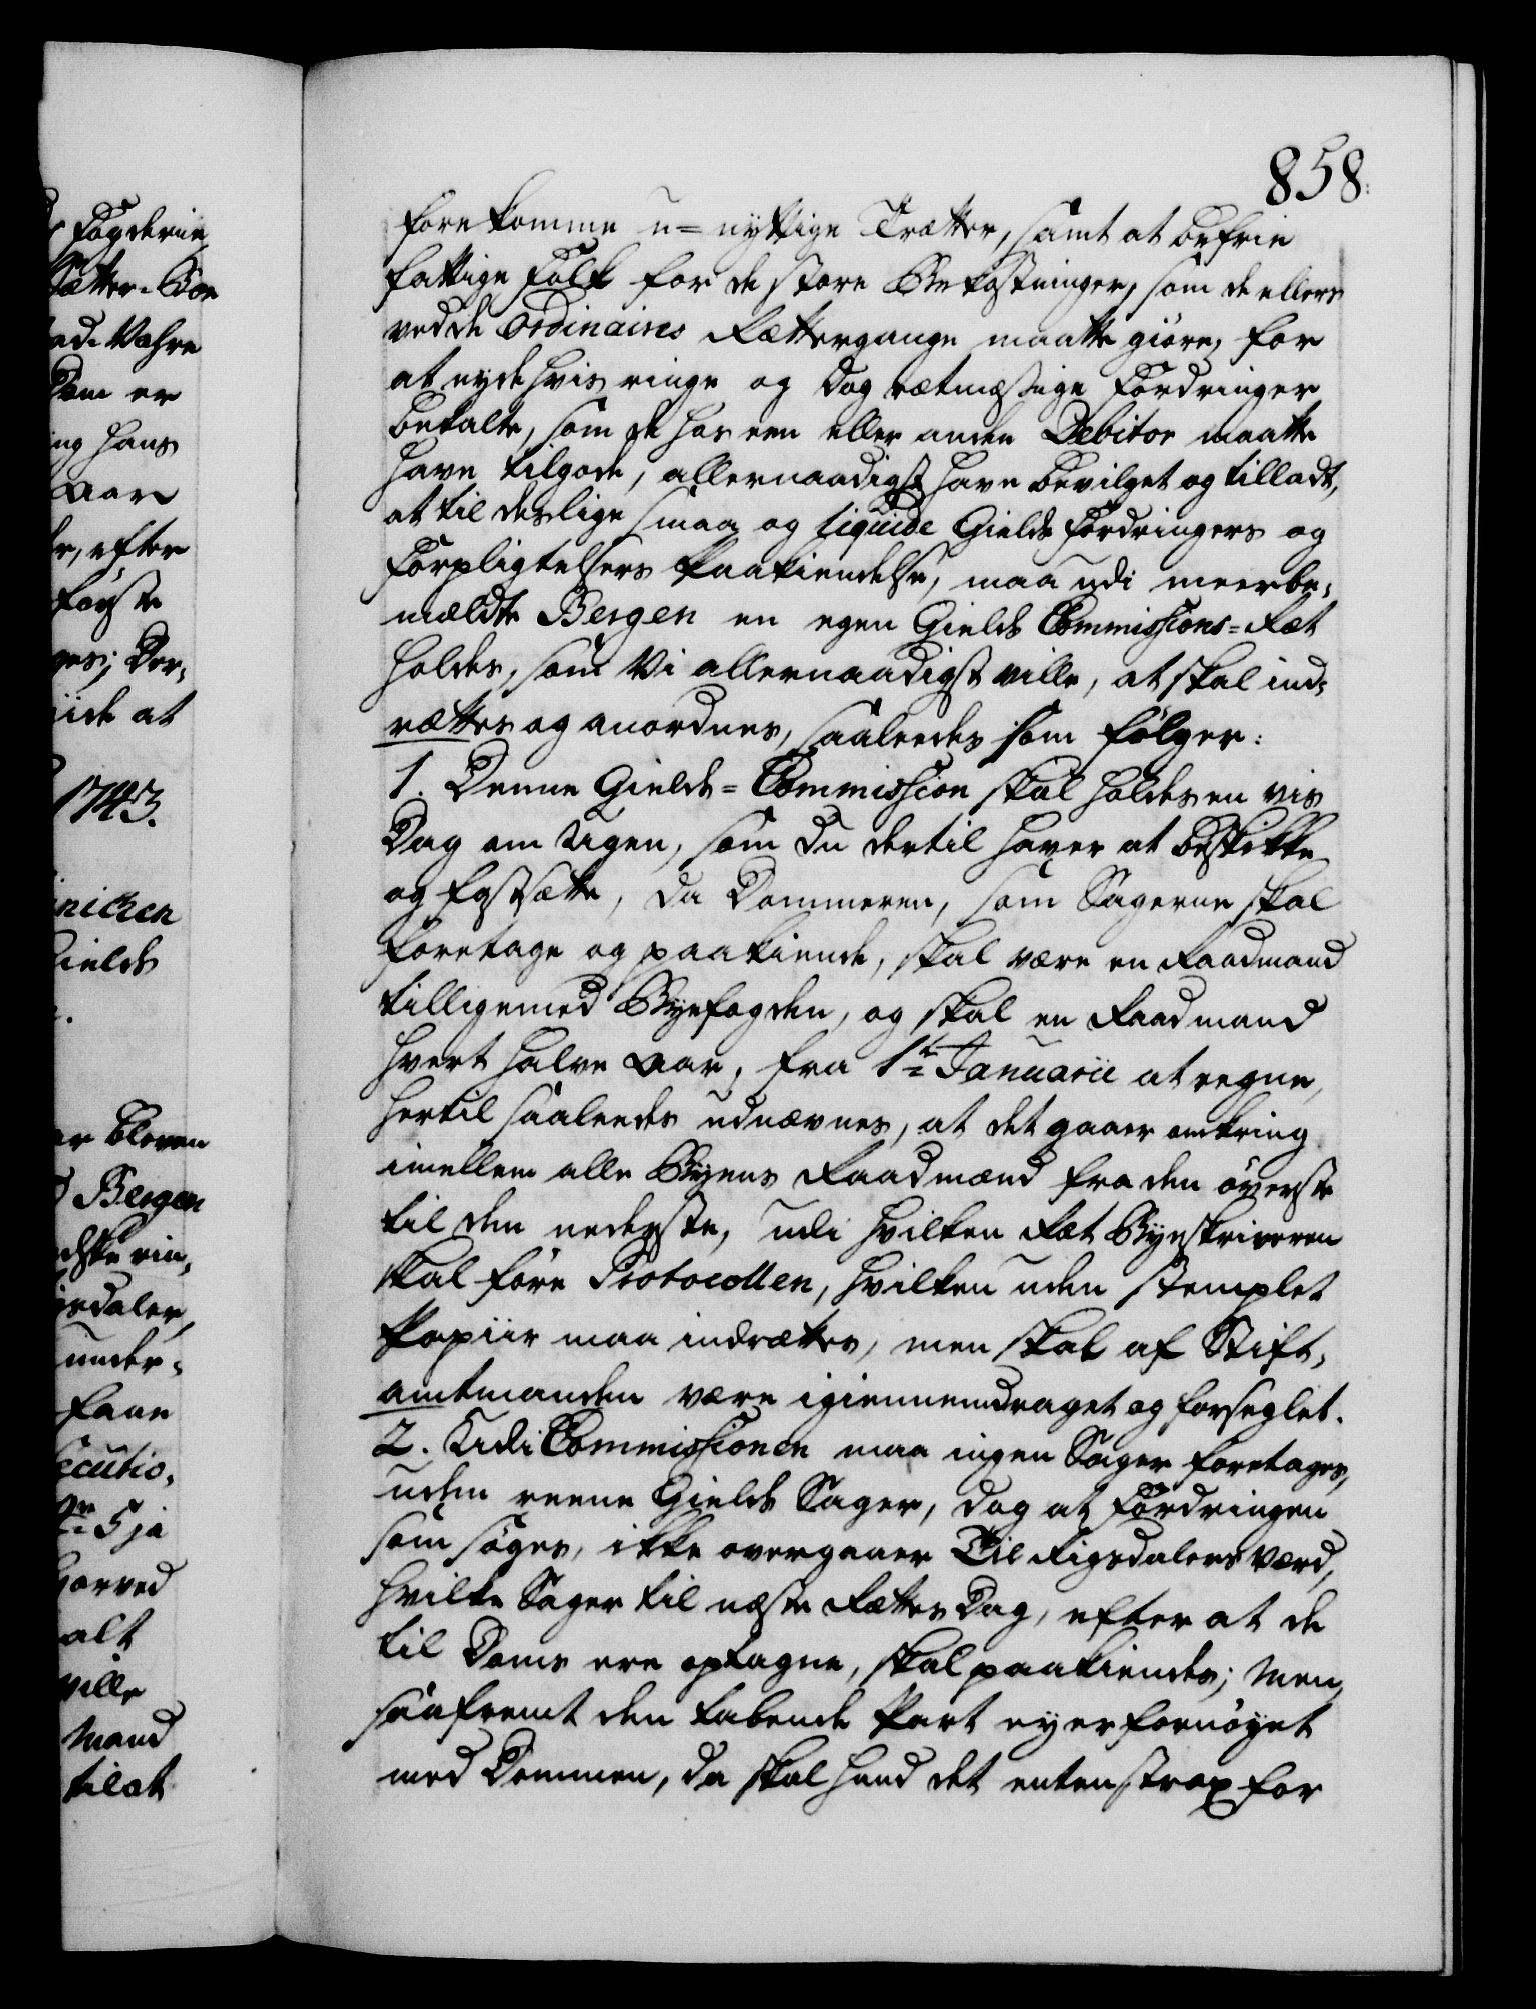 Fogderie
Sætter-Boe
ad. Vahre
Dom er
ing hans
aar
er, efter
første
ges; Der,
iide at
1743.
ielde
er Eloren
Bergen
under,
faae
ecutio,
5 ja
herved
alt
ville
Mand
tilat
858.
forekomme u=nyttige Trætter, samt at befrie
fattige Folk for de store Bekostninger, som de ellers
ved de Ordinaires Rættergange maatte giöre, for
at nyde hvis ringe og dog rætmæssige Fordringer
betalte, som de hos een eller anden Debitor maatte
have tilgode, allernaadigst have bevilget og tilladt,
at til deslige smaa og liquide Gields Fordringers og
Forpligtelsers Paakiendelse, maa udi meerbe,
mældte Bergen en egen Gields Commissions=Ræt
holdes, som Vi allernaadigst ville, at skal ind,
rættes og anordnes, saaleedes som fölger:
1. Denne Gields=Commission skal holdes en vis
Dag om Ugen, som du dertil haver at beskikke
og fastsætte, da Dommeren, som Sagerne skal
foretage og paakiende, skal være en Raadmand
tilligemed Byefogden, og skal en Raadmand
hvert halve Aar, fra 1te Januarii at regne,
hertil saaleedes udnævnes, at det gaaer omkring
imellem alle Byens Raadmænd fra den överste
til den nederste, udi hvilken Ræt Byeskriveren
skal före Protocollen, hvilken uden stemplet
Papiir maa indrættes, men skal af Stift,
amtmanden være igiennemdraget og forseglet.
2. Udi Commissionen maa ingen Sager foretages,
uden reene Gields Sager, dog at Fordringen
som söges, ikke overgaaer Tie Rigsdalers Værd,
hvilke Sager til næste Rættes Dag, efter at de
til Doms ere optagne, skal paakiendes; Men,
saafremt den tabende Part ey er fornöyet
med Dommen, da skal hand det enten strax for